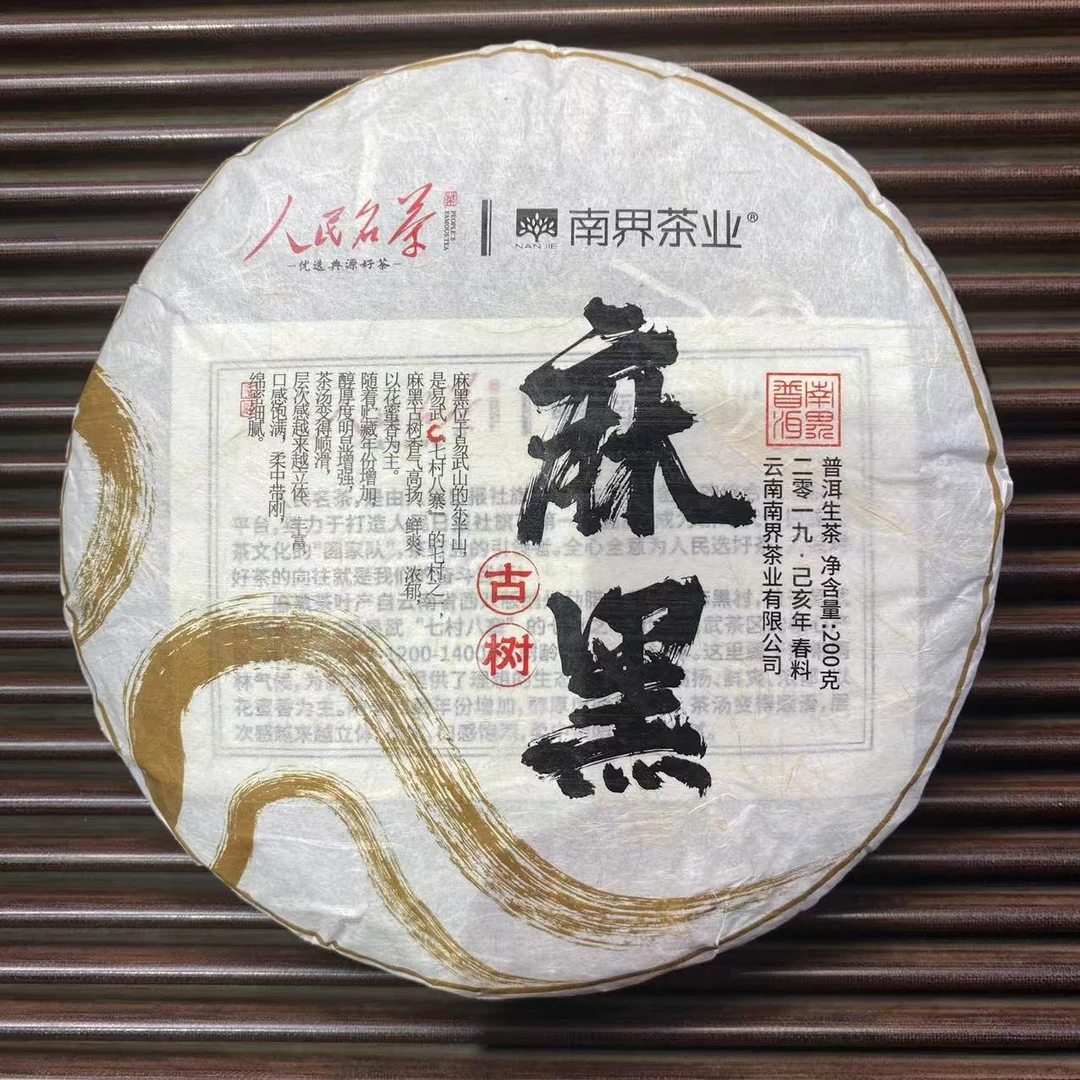 人民名茶
PEOPLE'S FAMOUS TEA
优选典源好茶
NAN JIE
南界茶业®
麻黑
古树
南界普洱
普洱生茶 净含量:200克
二零一九·己亥年 春料
云南南界茶业有限公司
麻黑位于易武山的东半山,
是易武“七村八寨”的七村之一,
麻黑古树香气高扬、鲜爽、浓郁,
以花蜜香为主。
随着贮藏年份增加,
醇厚度明显增强,
茶汤变得顺滑,
层次感越来越立体、丰富,
口感饱满,柔中带刚,
绵密细腻。